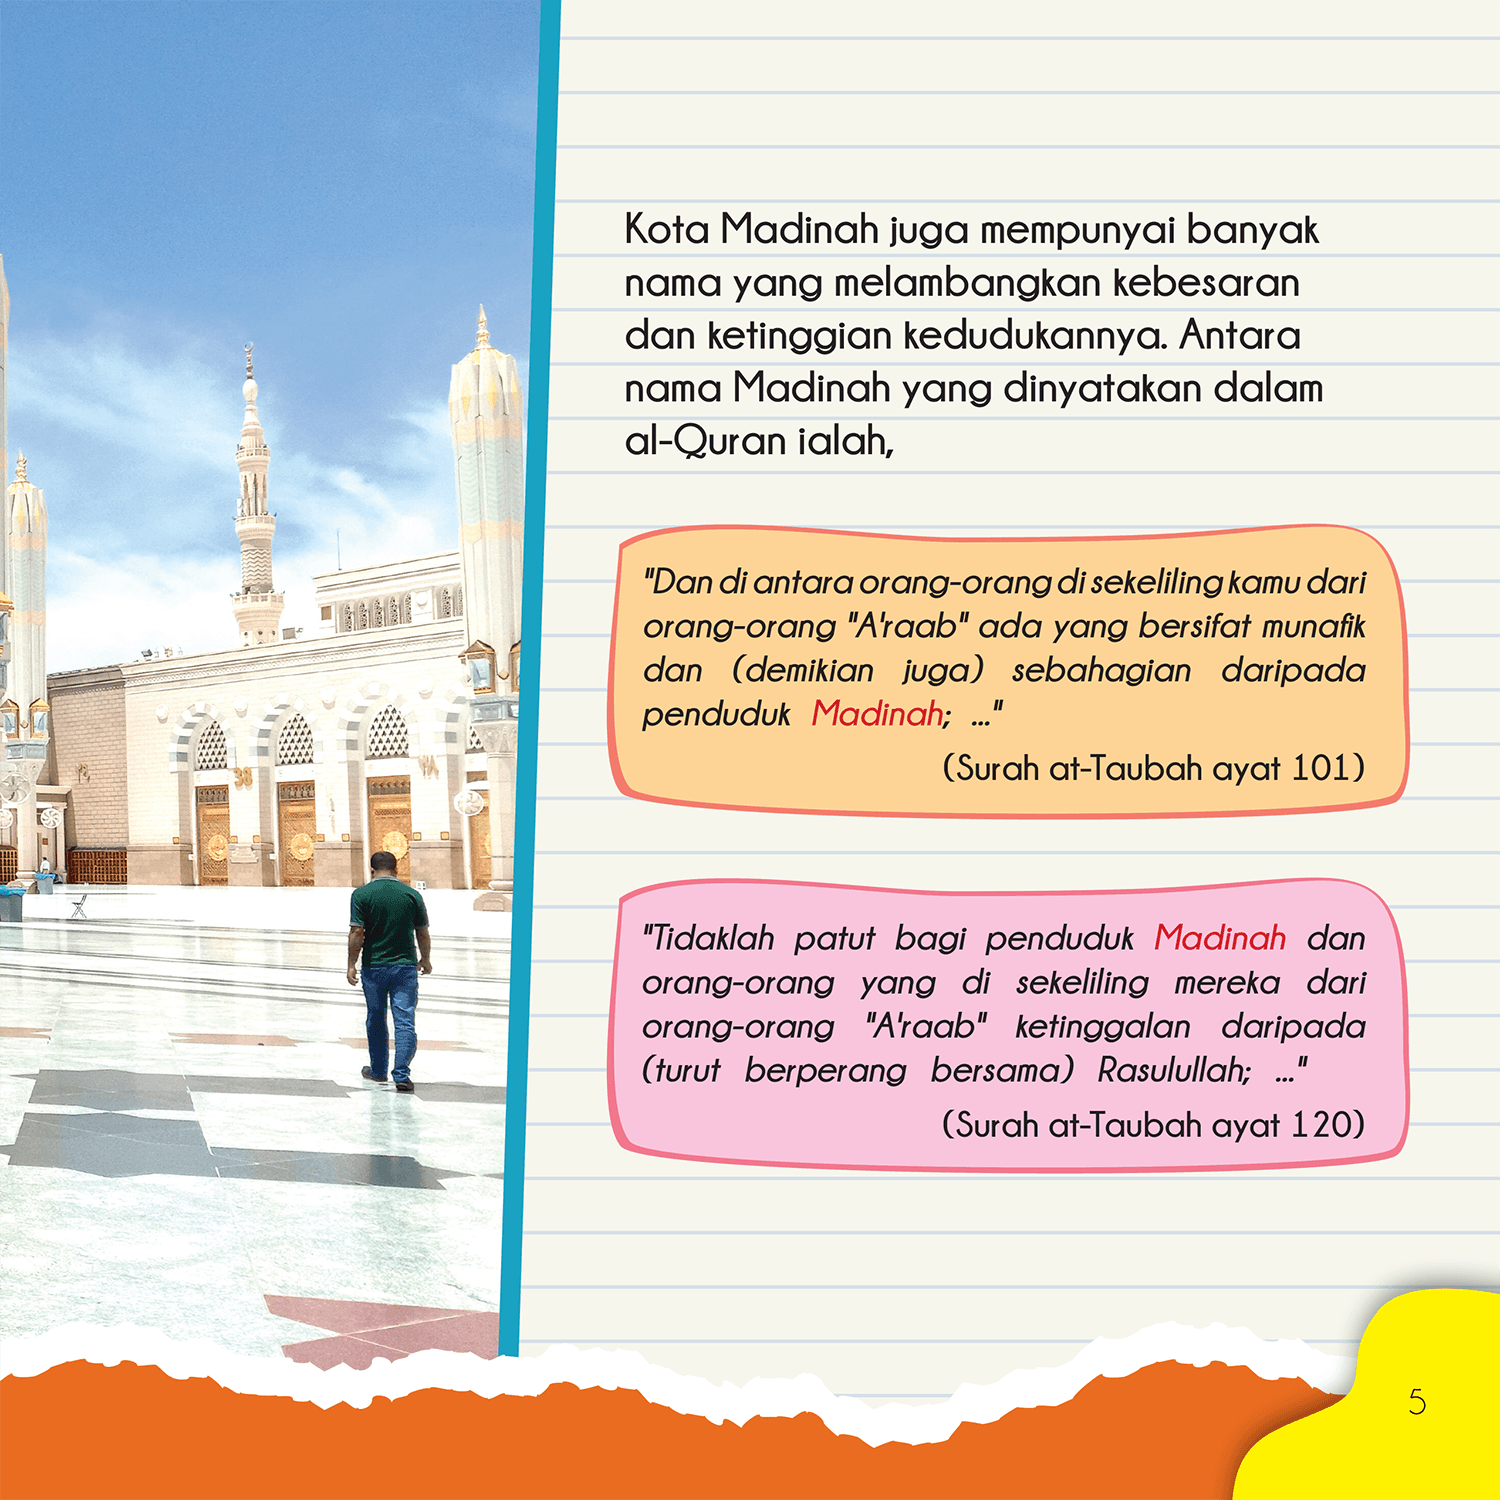 Kota Madinah juga mempunyai banyak
nama yang melambangkan kebesaran
dan ketinggian kedudukannya. Antara
nama Madinah yang dinyatakan dalam
al-Quran ialah,
"Dan di antara orang-orang di sekeliling kamu dari
orang-orang "A'raab" ada yang bersifat munafik
dan (demikian juga) sebahagian daripada
penduduk Madinah; ..."
(Surah at-Taubah ayat 101)
"Tidaklah patut bagi penduduk Madinah dan
orang-orang yang di sekeliling mereka dari
orang-orang "A'raab" ketinggalan daripada
(turut berperang bersama) Rasulullah; ..."
(Surah at-Taubah ayat 120)
38
5